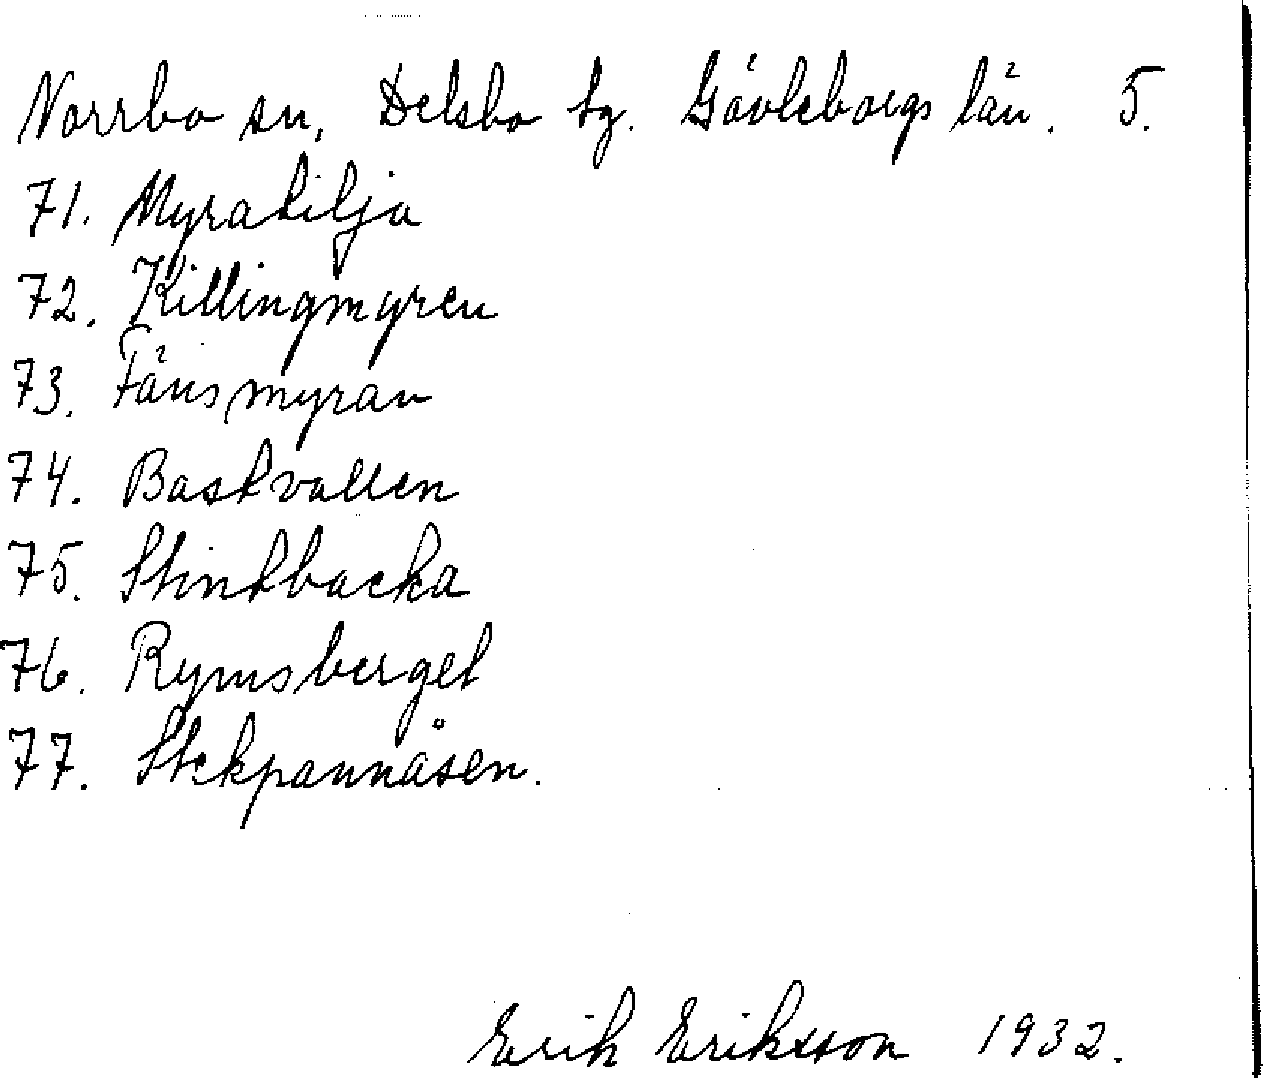 Norrbo sn, Delsbo tg. Gävleborgs län. 5.
71. Myrakilja
72. Killingmyren
73. Fänsmyran
74. Baskvallen
75. Stinkbacka
76. Rymsberget
77. Stekpannåsen.
Erik Eriksson 1932.